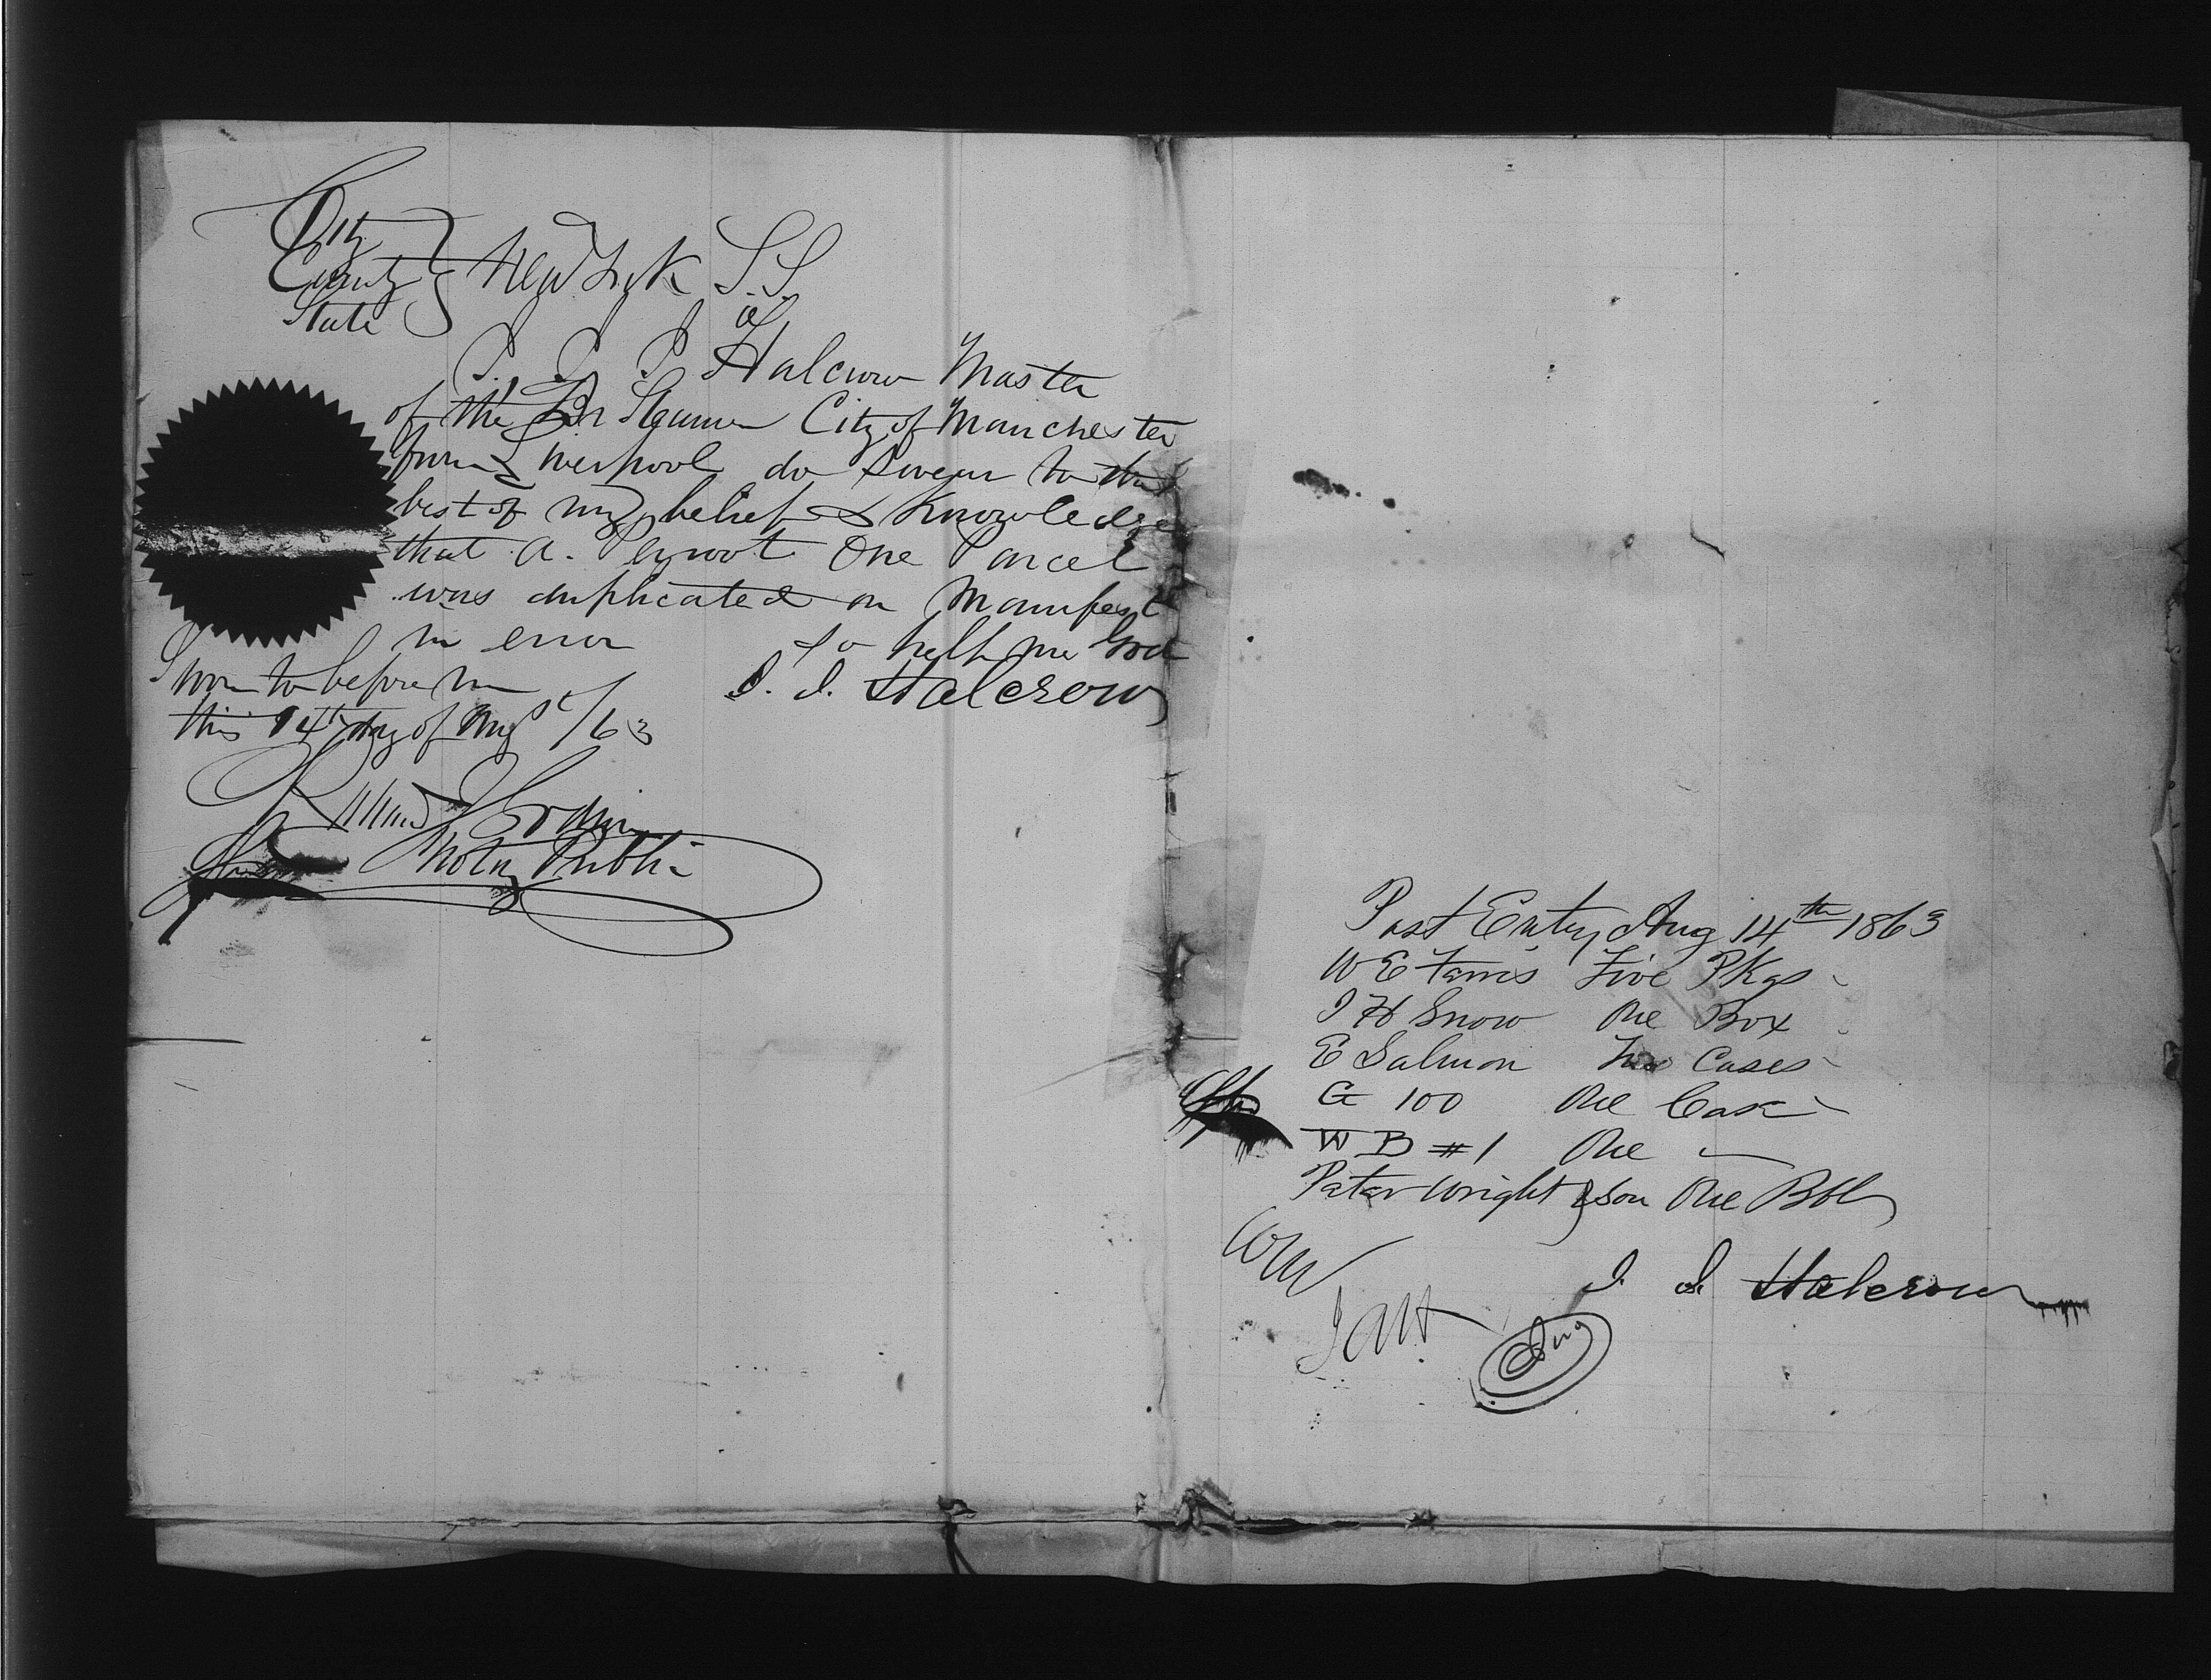 City
County } New York S.S.
State
I, I. I. Halcrow Master
of the Br Steamer City of Manchester
from Liverpool do swear to the
best of my belief & Knowledge
that A. Peyrot One Parcel
was duplicated on Manifest
in error So help me God
Sworn to before me I. I. Halcrow
this 14th day of Aug /63
Notary Public
Post Entry Aug 14th 1863
W E Farris Five Pkgs
J H Snow One Box
E Salmon Two Cases
G 100 One Cask
W B #1 One "
Peter Wright & Son One Bbl
I. I. Halcrow